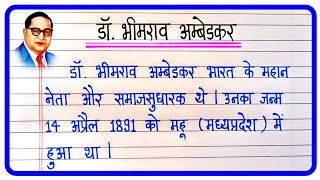 डॉ. भीमराव अम्बेडकर
डॉ. भीमराव अम्बेडकर भारत के महान
नेता और समाजसुधारक थे । उनका जन्म
14 अप्रैल 1891 को महू (मध्यप्रदेश) में
हुआ था ।